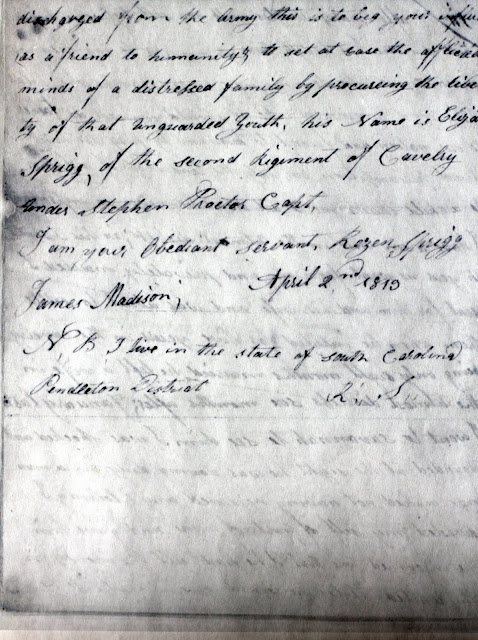 discharged from the army this is to beg your
as a friend to humanity to set at ease the afflicted
minds of a distressed family by procureing the liber
ty of that unguarded Youth, his Name is Elija
Sprigg, of the second Rigiment of Cavelry
under Stephen Proctor Capt,
I am your Obediant servant, Kezen Sprigg
April 2nd 1813
James Madison;
N, B I live in the state of South Carolina
Pendleton District
K. S.